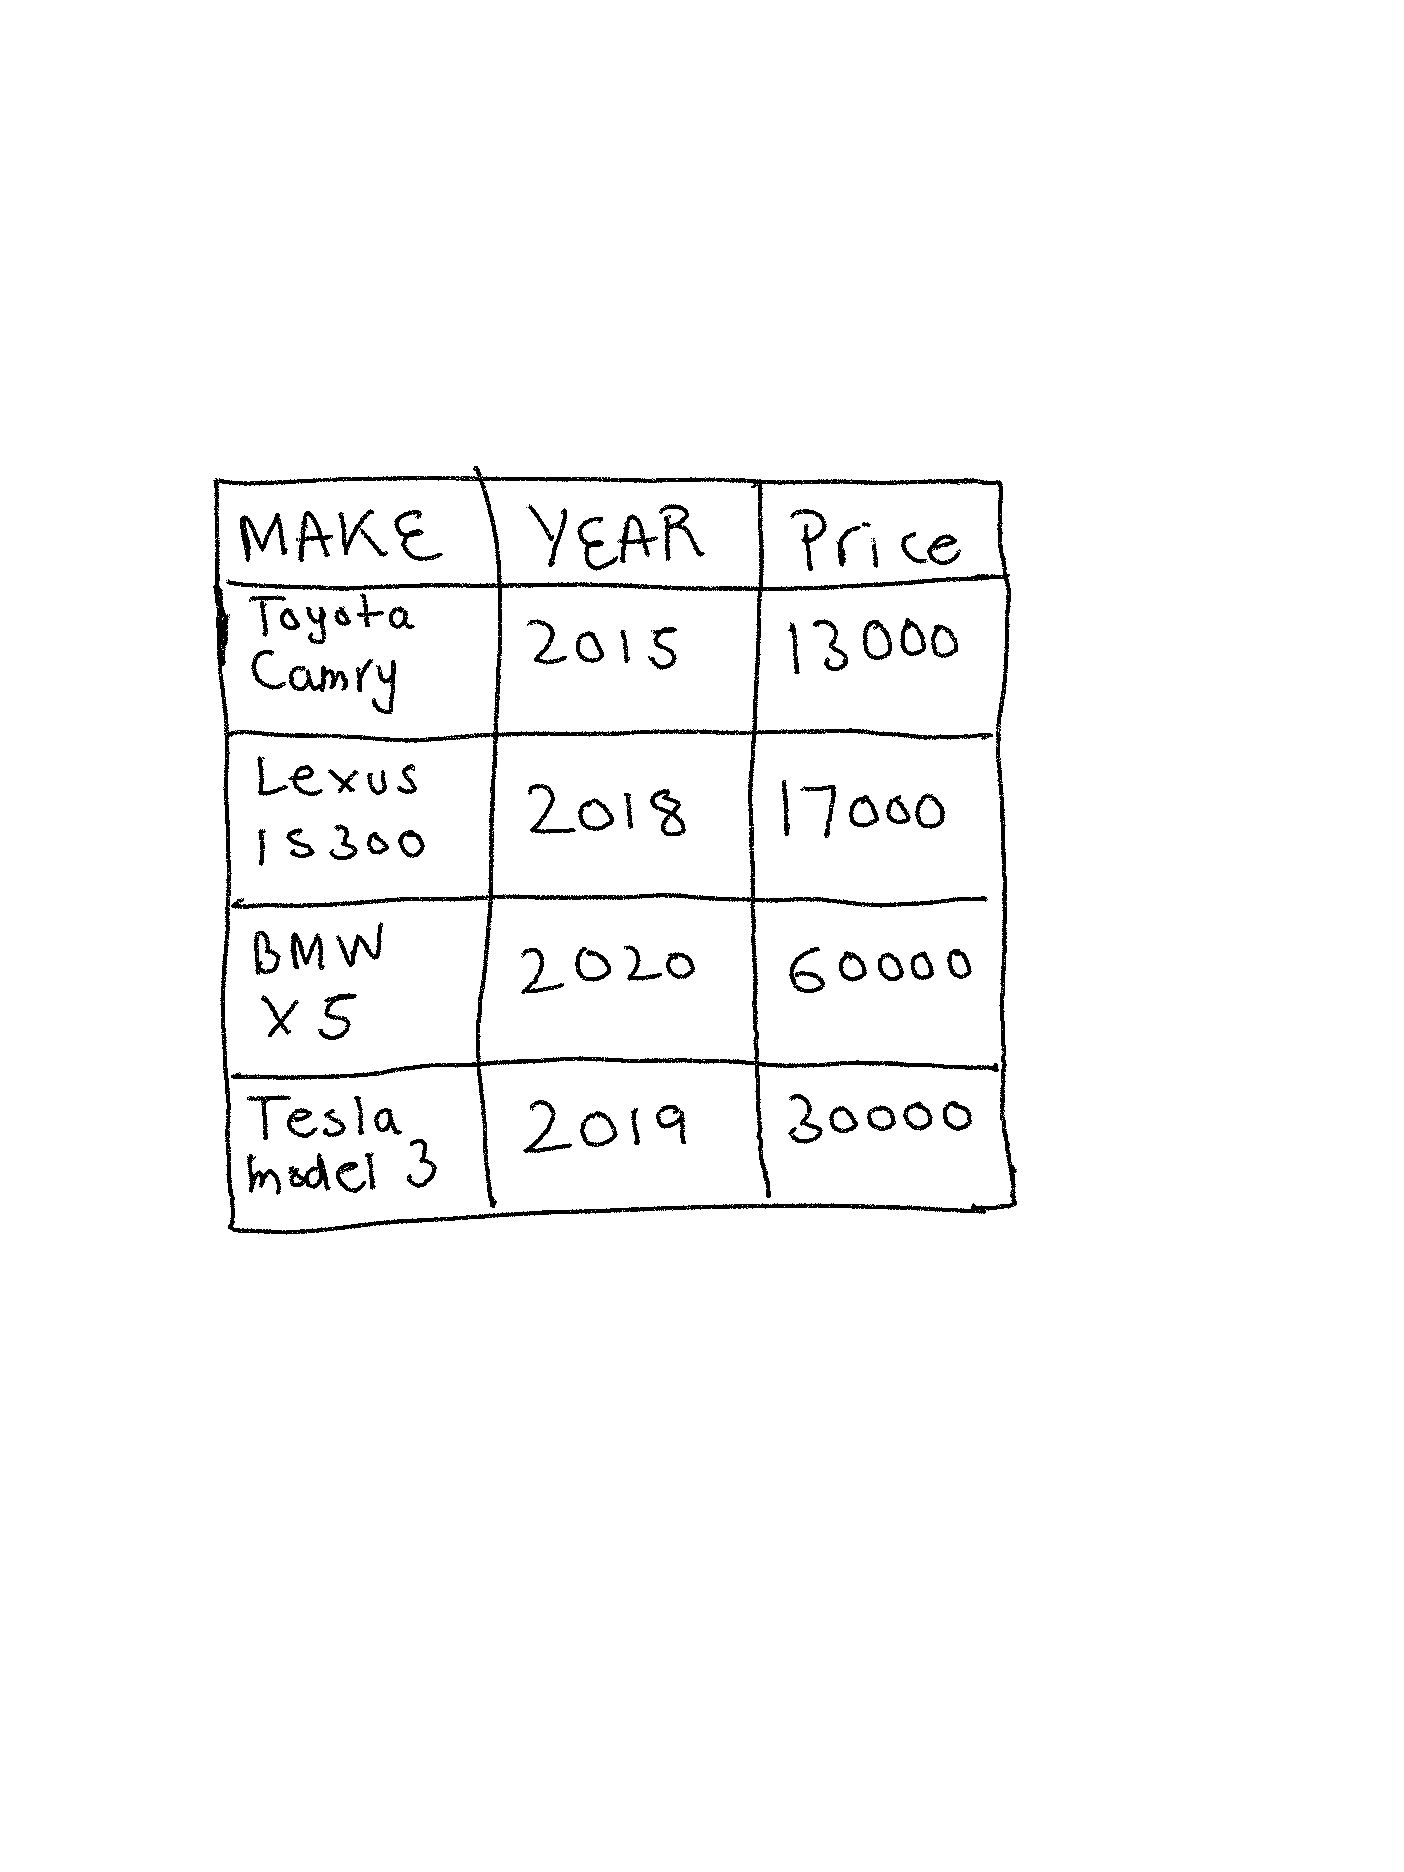 MAKE YEAR Price
Toyota
Camry 2015 13000
Lexus
IS300 2018 17000
BMW
X5 2020 60000
Tesla
model 3 2019 30000